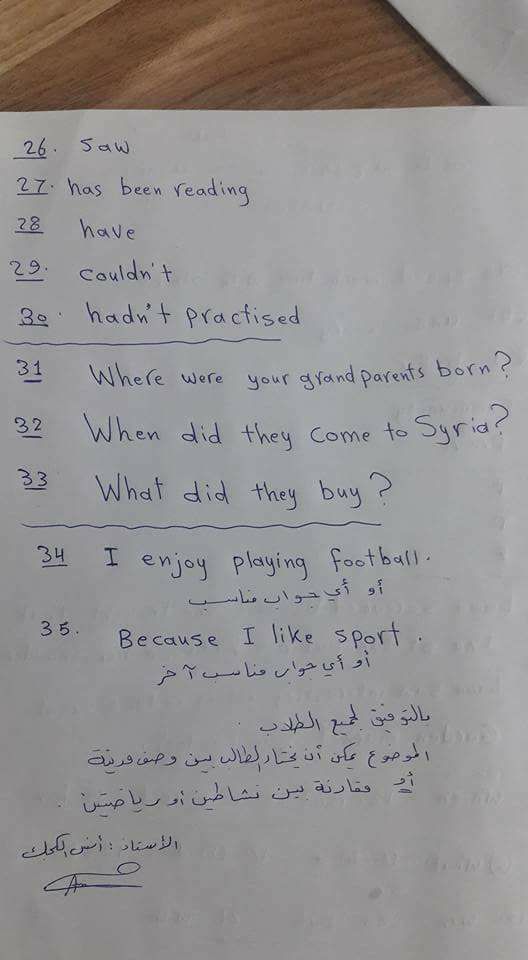 26. Saw
27. has been reading
28 have
29. couldn't
30. hadn't practised
31 Where were your grandparents born?
32 When did they come to Syria?
33 What did they buy?
34 I enjoy playing football.
أو أي جواب مناسب
35. Because I like sport.
أو أي جواب مناسب آخر
بالتوفيق لجميع الطلاب.
الموضوع يمكن أن يختار الطالب بين وصف مدينة
أو مقارنة بين نشاطين أو رياضتين.
الأستاذ: أنس